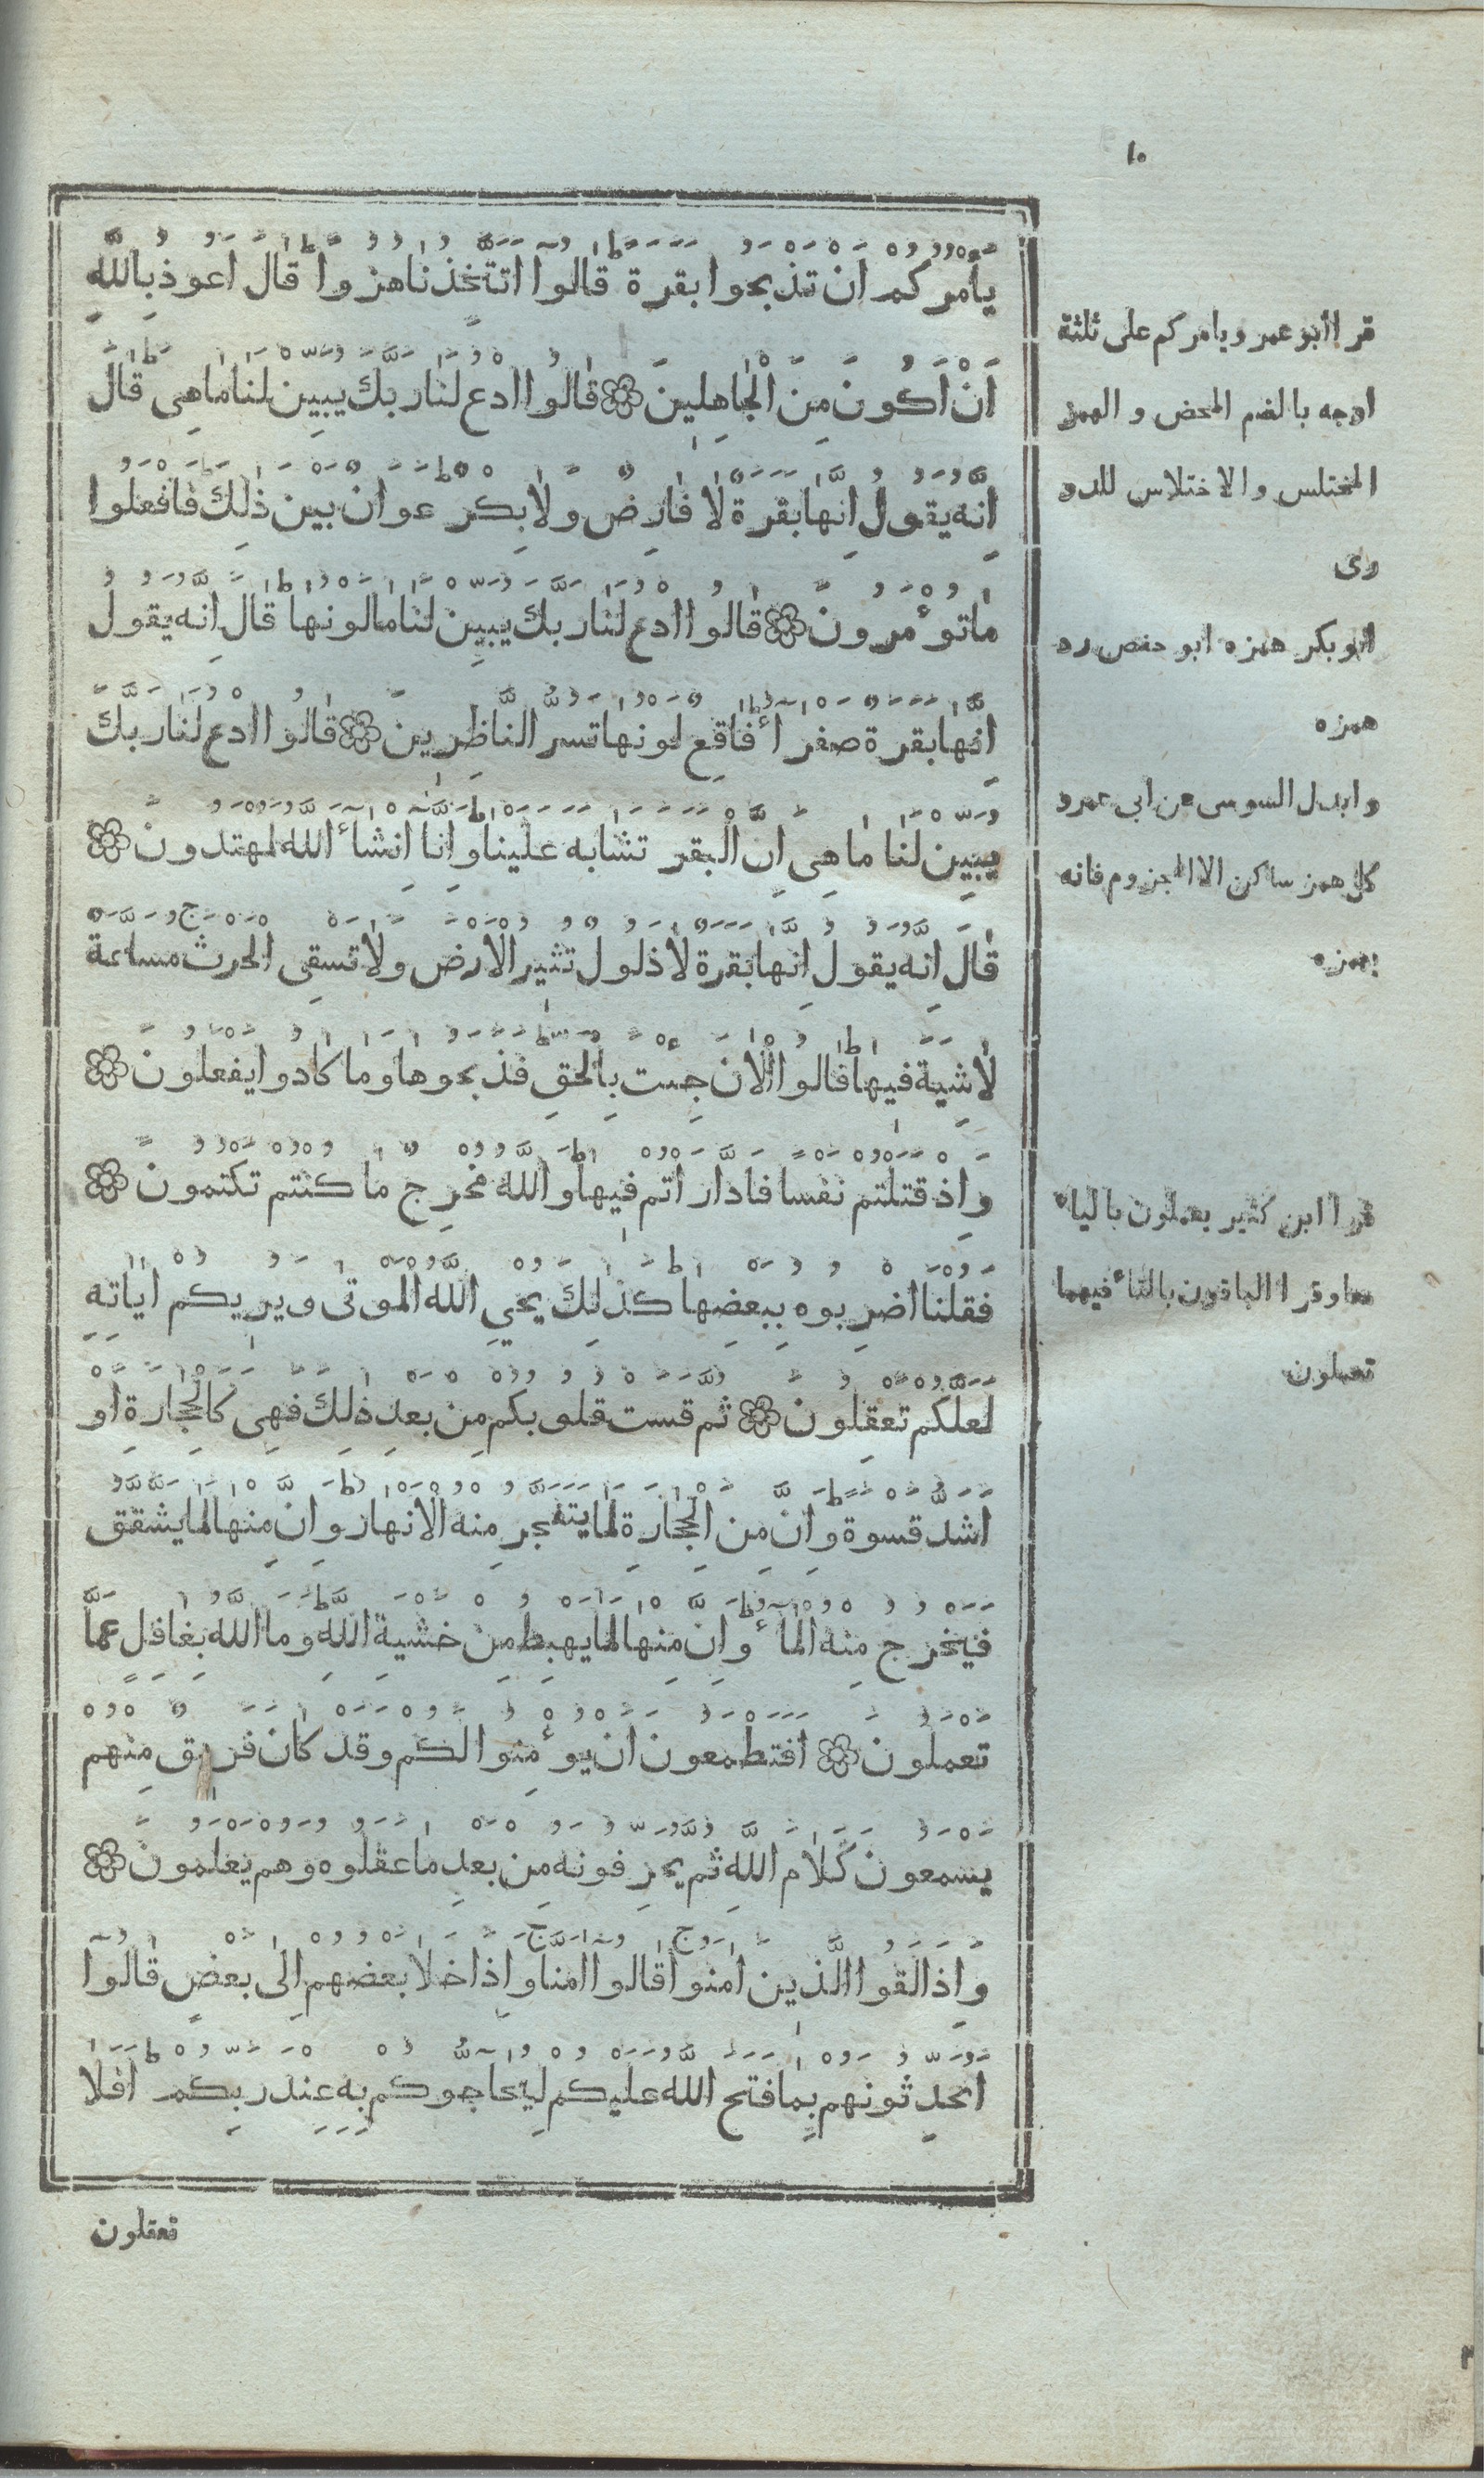 ١٠
يَأْمُرُكُمْ اَنْ تَذْبَحُوا بَقَرَةً قَالُوا اَتَتَّخِذُنَا هُزُوًا قَالَ اَعُوذُ بِاللّٰهِ
اَنْ اَكُونَ مِنَ الْجَاهِلِينَ ۞ قَالُوا ادْعُ لَنَا رَبَّكَ يُبَيِّنْ لَنَا مَا هِىَ قَالَ
اِنَّهُ يَقُولُ اِنَّهَا بَقَرَةٌ لَا فَارِضٌ وَلَا بِكْرٌ عَوَانٌ بَيْنَ ذٰلِكَ فَافْعَلُوا
مَا تُوءْمَرُونَ ۞ قَالُوا ادْعُ لَنَا رَبَّكَ يُبَيِّنْ لَنَا مَا لَوْنُهَا قَالَ اِنَّهُ يَقُولُ
اِنَّهَا بَقَرَةٌ صَفْرَاءُ فَاقِعٌ لَوْنُهَا تَسُرُّ النَّاظِرِينَ ۞ قَالُوا ادْعُ لَنَا رَبَّكَ
يُبَيِّنْ لَنَا مَا هِىَ اِنَّ الْبَقَرَ تَشَابَهَ عَلَيْنَا وَاِنَّا اِنْ شَاءَ اللّٰهُ لَمُهْتَدُونَ ۞
قَالَ اِنَّهُ يَقُولُ اِنَّهَا بَقَرَةٌ لَا ذَلُولٌ تُثِيرُ الْاَرْضَ وَلَا تَسْقِى الْحَرْثَ مُسَلَّمَةٌ
لَا شِيَةَ فِيهَا قَالُوا الْاٰنَ جِئْتَ بِالْحَقِّ فَذَبَحُوهَا وَمَا كَادُوا يَفْعَلُونَ ۞
وَاِذْ قَتَلْتُمْ نَفْسًا فَادَّارَأْتُمْ فِيهَا وَاللّٰهُ مُخْرِجٌ مَا كُنْتُمْ تَكْتُمُونَ ۞
فَقُلْنَا اضْرِبُوهُ بِبَعْضِهَا كَذٰلِكَ يُحْيِ اللّٰهُ الْمَوْتٰى وَيُرِيكُمْ اٰيَاتِهِ
لَعَلَّكُمْ تَعْقِلُونَ ۞ ثُمَّ قَسَتْ قُلُوبُكُمْ مِنْ بَعْدِ ذٰلِكَ فَهِىَ كَالْحِجَارَةِ اَوْ
اَشَدُّ قَسْوَةً وَاِنَّ مِنَ الْحِجَارَةِ لَمَا يَتَفَجَّرُ مِنْهُ الْاَنْهَارُ وَاِنَّ مِنْهَا لَمَا يَشَّقَّقُ
فَيَخْرُجُ مِنْهُ الْمَاءُ وَاِنَّ مِنْهَا لَمَا يَهْبِطُ مِنْ خَشْيَةِ اللّٰهِ وَمَا اللّٰهُ بِغَافِلٍ عَمَّا
تَعْمَلُونَ ۞ اَفَتَطْمَعُونَ اَنْ يُوءْمِنُوا لَكُمْ وَقَدْ كَانَ فَرِيقٌ مِنْهُمْ
يَسْمَعُونَ كَلَامَ اللّٰهِ ثُمَّ يُحَرِّفُونَهُ مِنْ بَعْدِ مَا عَقَلُوهُ وَهُمْ يَعْلَمُونَ ۞
وَاِذَا لَقُوا الَّذِينَ اٰمَنُوا قَالُوا اٰمَنَّا وَاِذَا خَلَا بَعْضُهُمْ اِلٰى بَعْضٍ قَالُوا
اَتُحَدِّثُونَهُمْ بِمَا فَتَحَ اللّٰهُ عَلَيْكُمْ لِيُحَاجُّوكُمْ بِهِ عِنْدَ رَبِّكُمْ اَفَلَا
تعقلون
قرا ابو عمر ويامركم على ثلثة
اوجه بالضم المحض والهمز
المختلس والاختلاس للدو
رى
ابو بكر همزه ابو حفص
همزه
وابدل السوسى عن ابى عمرو
كل همز ساكن الا المجزوم فانه
يهمزه
قرا ابن كثير يعملون بالياء
وقرا الباقون بالتاء فيهما
تعملون